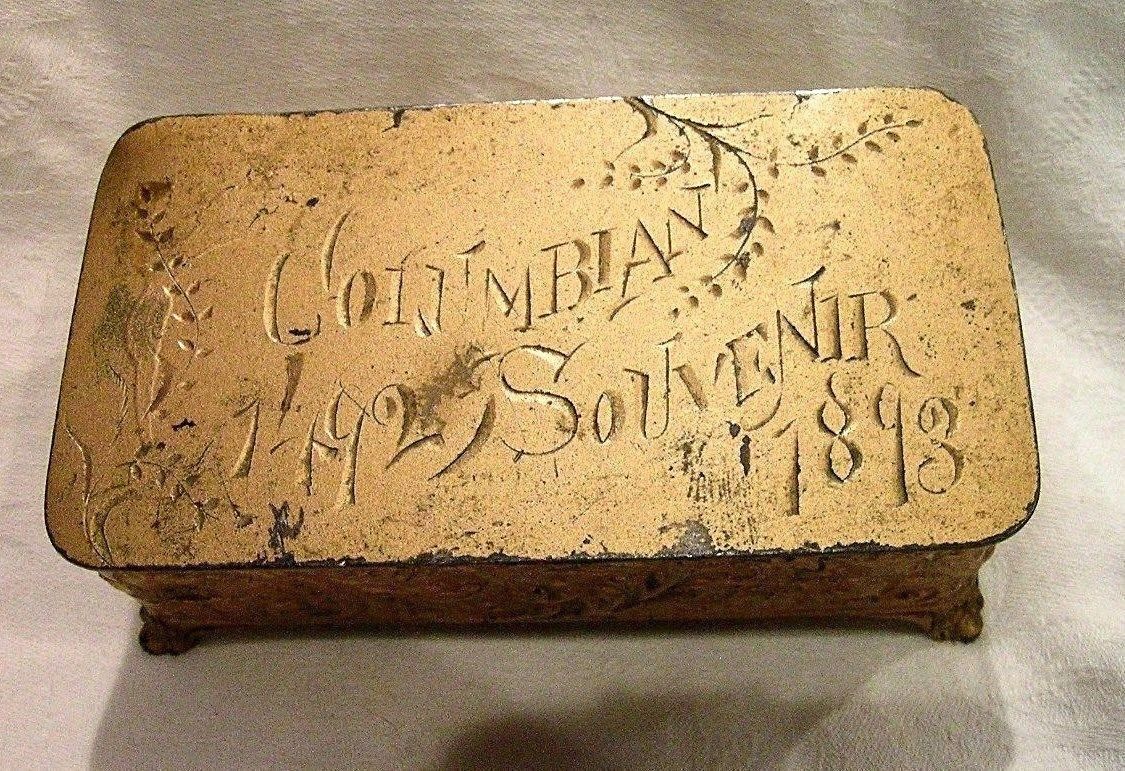 COLUMBIAN
SOUVENIR
1492 1893